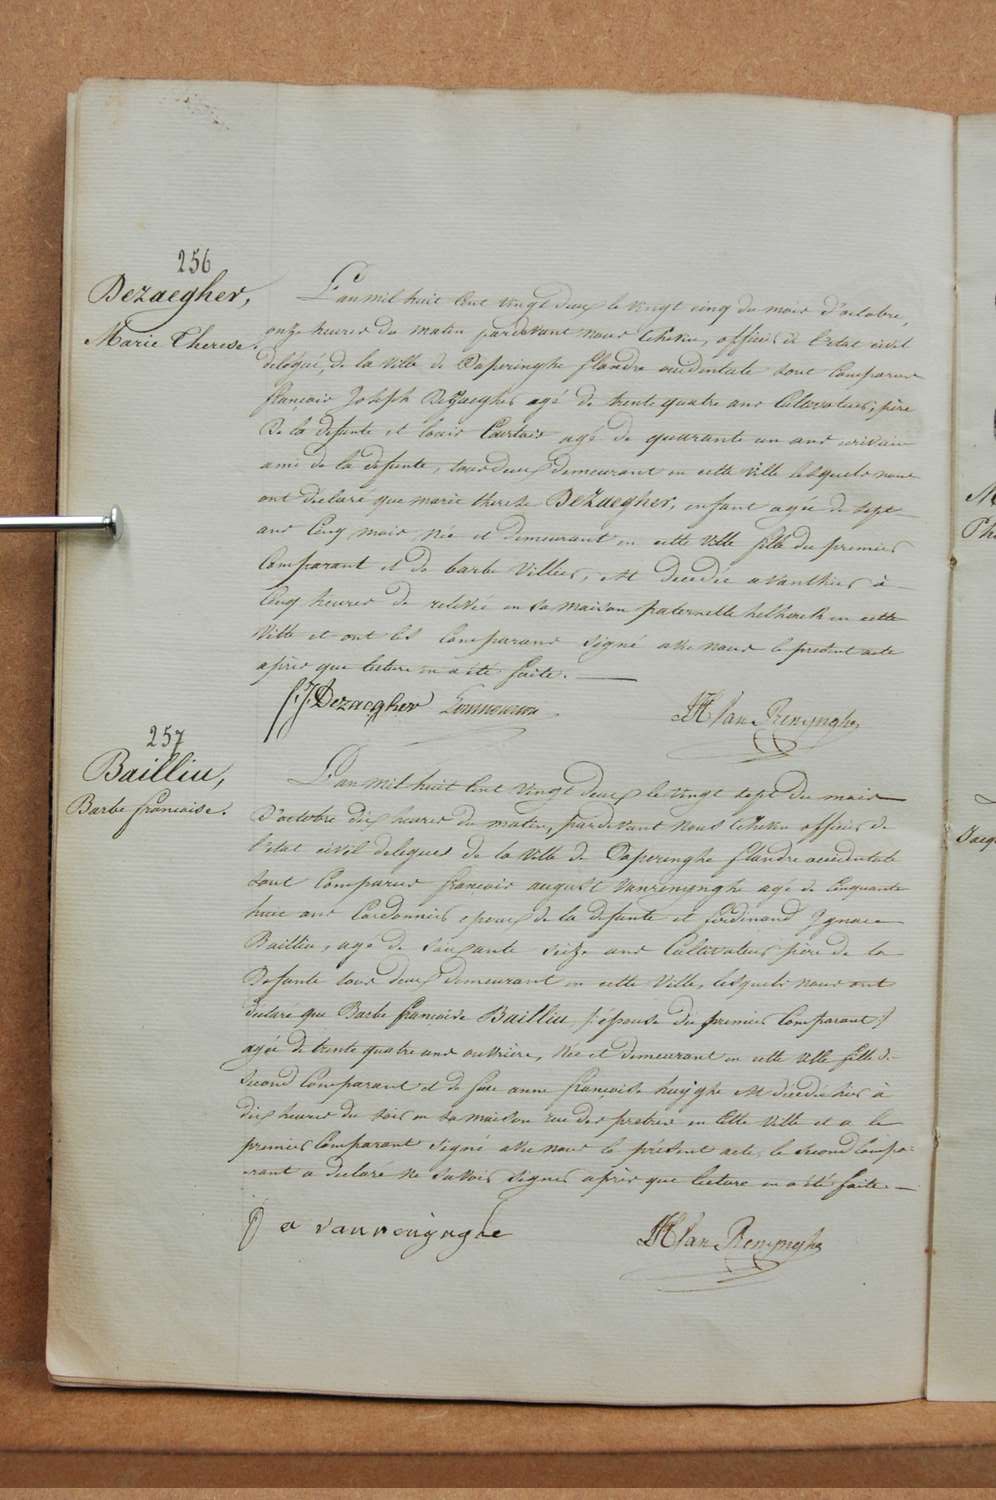 256
Dezaegher,
Marie Therese.
L'an mil huit cent vingt deux le vingt cinq du mois d'octobre,
onze heures du matin pardevant nous Echevin, officier de l'etat civil
delégué, de la ville de Poperinghe flandre occidentale sont comparus
françois Joseph Dezaegher agé de trente quatre ans cultivateur, père
de la defunte et louis Courtois agé de quarante un ans écrivain
ami de la defunte, tous deux demeurant en cette ville lesquels nous
ont declaré que marie therese Dezaegher, enfant agée de sept
ans cinq mois, née et demeurant en cette ville fille du premier
comparant et de barbe Villier, est decedée avanthier à
cinq heures de relevée en sa maison paternelle helhoek en cette
ville et ont les comparans signé avec nous le present acte
après que lecture en a été faite.
f. J. Dezaegher
Van Renynghe
257
Bailliu,
Barbe francoise.
L'an mil huit cent vingt deux le vingt sept du mois
d'octobre dix heures du matin, pardevant nous Echevin officier de
l'etat civil delegué de la ville de Poperinghe flandre occidentale
sont comparus francois august Vanrenynghe agé de cinquante
huit ans Cordonnier epoux de la defunte et ferdinand Ignace
Bailliu, agé de soixante seize ans Cultivateur père de la
Defunte tous deux demeurant en cette ville, lesquels nous ont
declaré que Barbe françoise Bailliu /:épouse du premier comparant:/
agée de trente quatre ans ouvrière, née et demeurant en cette ville fille du
second comparant et de feue anne françoise huyghe est décédée hier à
dix heures du soir en sa maison rue des pretres en cette ville et a le
premier comparant signé avec nous le présent acte, le second compa-
-rant a declaré ne savoir signer après que lecture en a été faite.
f a vanrenijnghe
Van Renynghe